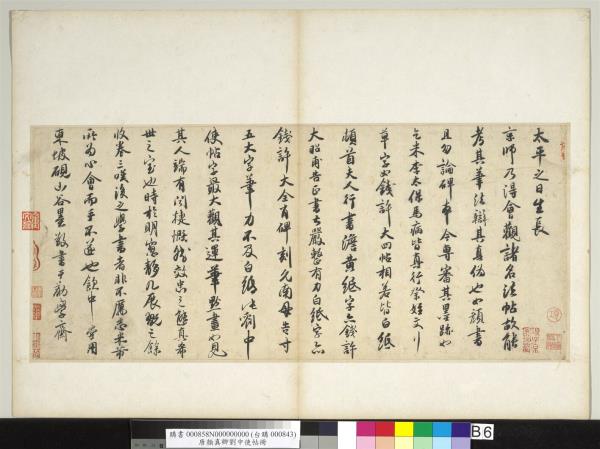 太平之日生長
京師乃得會觀諸名法帖故能
考其筆法辯其真偽也如顏書
且勿論碑本今專審其墨跡如
乞米李太保馬病皆真行祭姪文
草字如錢許大四帖相若皆白紙
頓首夫人行書澹黃紙字亦錢許
大昭甫告正書古嚴整有力白紙字亦
錢許大全有碑刻允南母告寸
五大字筆力不及白紙此劉中
使帖字最大觀其運筆點畫如見
其人端有閑捷慨然效忠之態真希
世之寶也時於明窗靜几展玩之餘
收卷三嘆後之學書者非不厲志
所為心會而手不逮也飲中
東坡硯山谷墨敬書于
購書 000858N000000000 (台購 000843)
唐顏真卿劉中使帖冊
B6